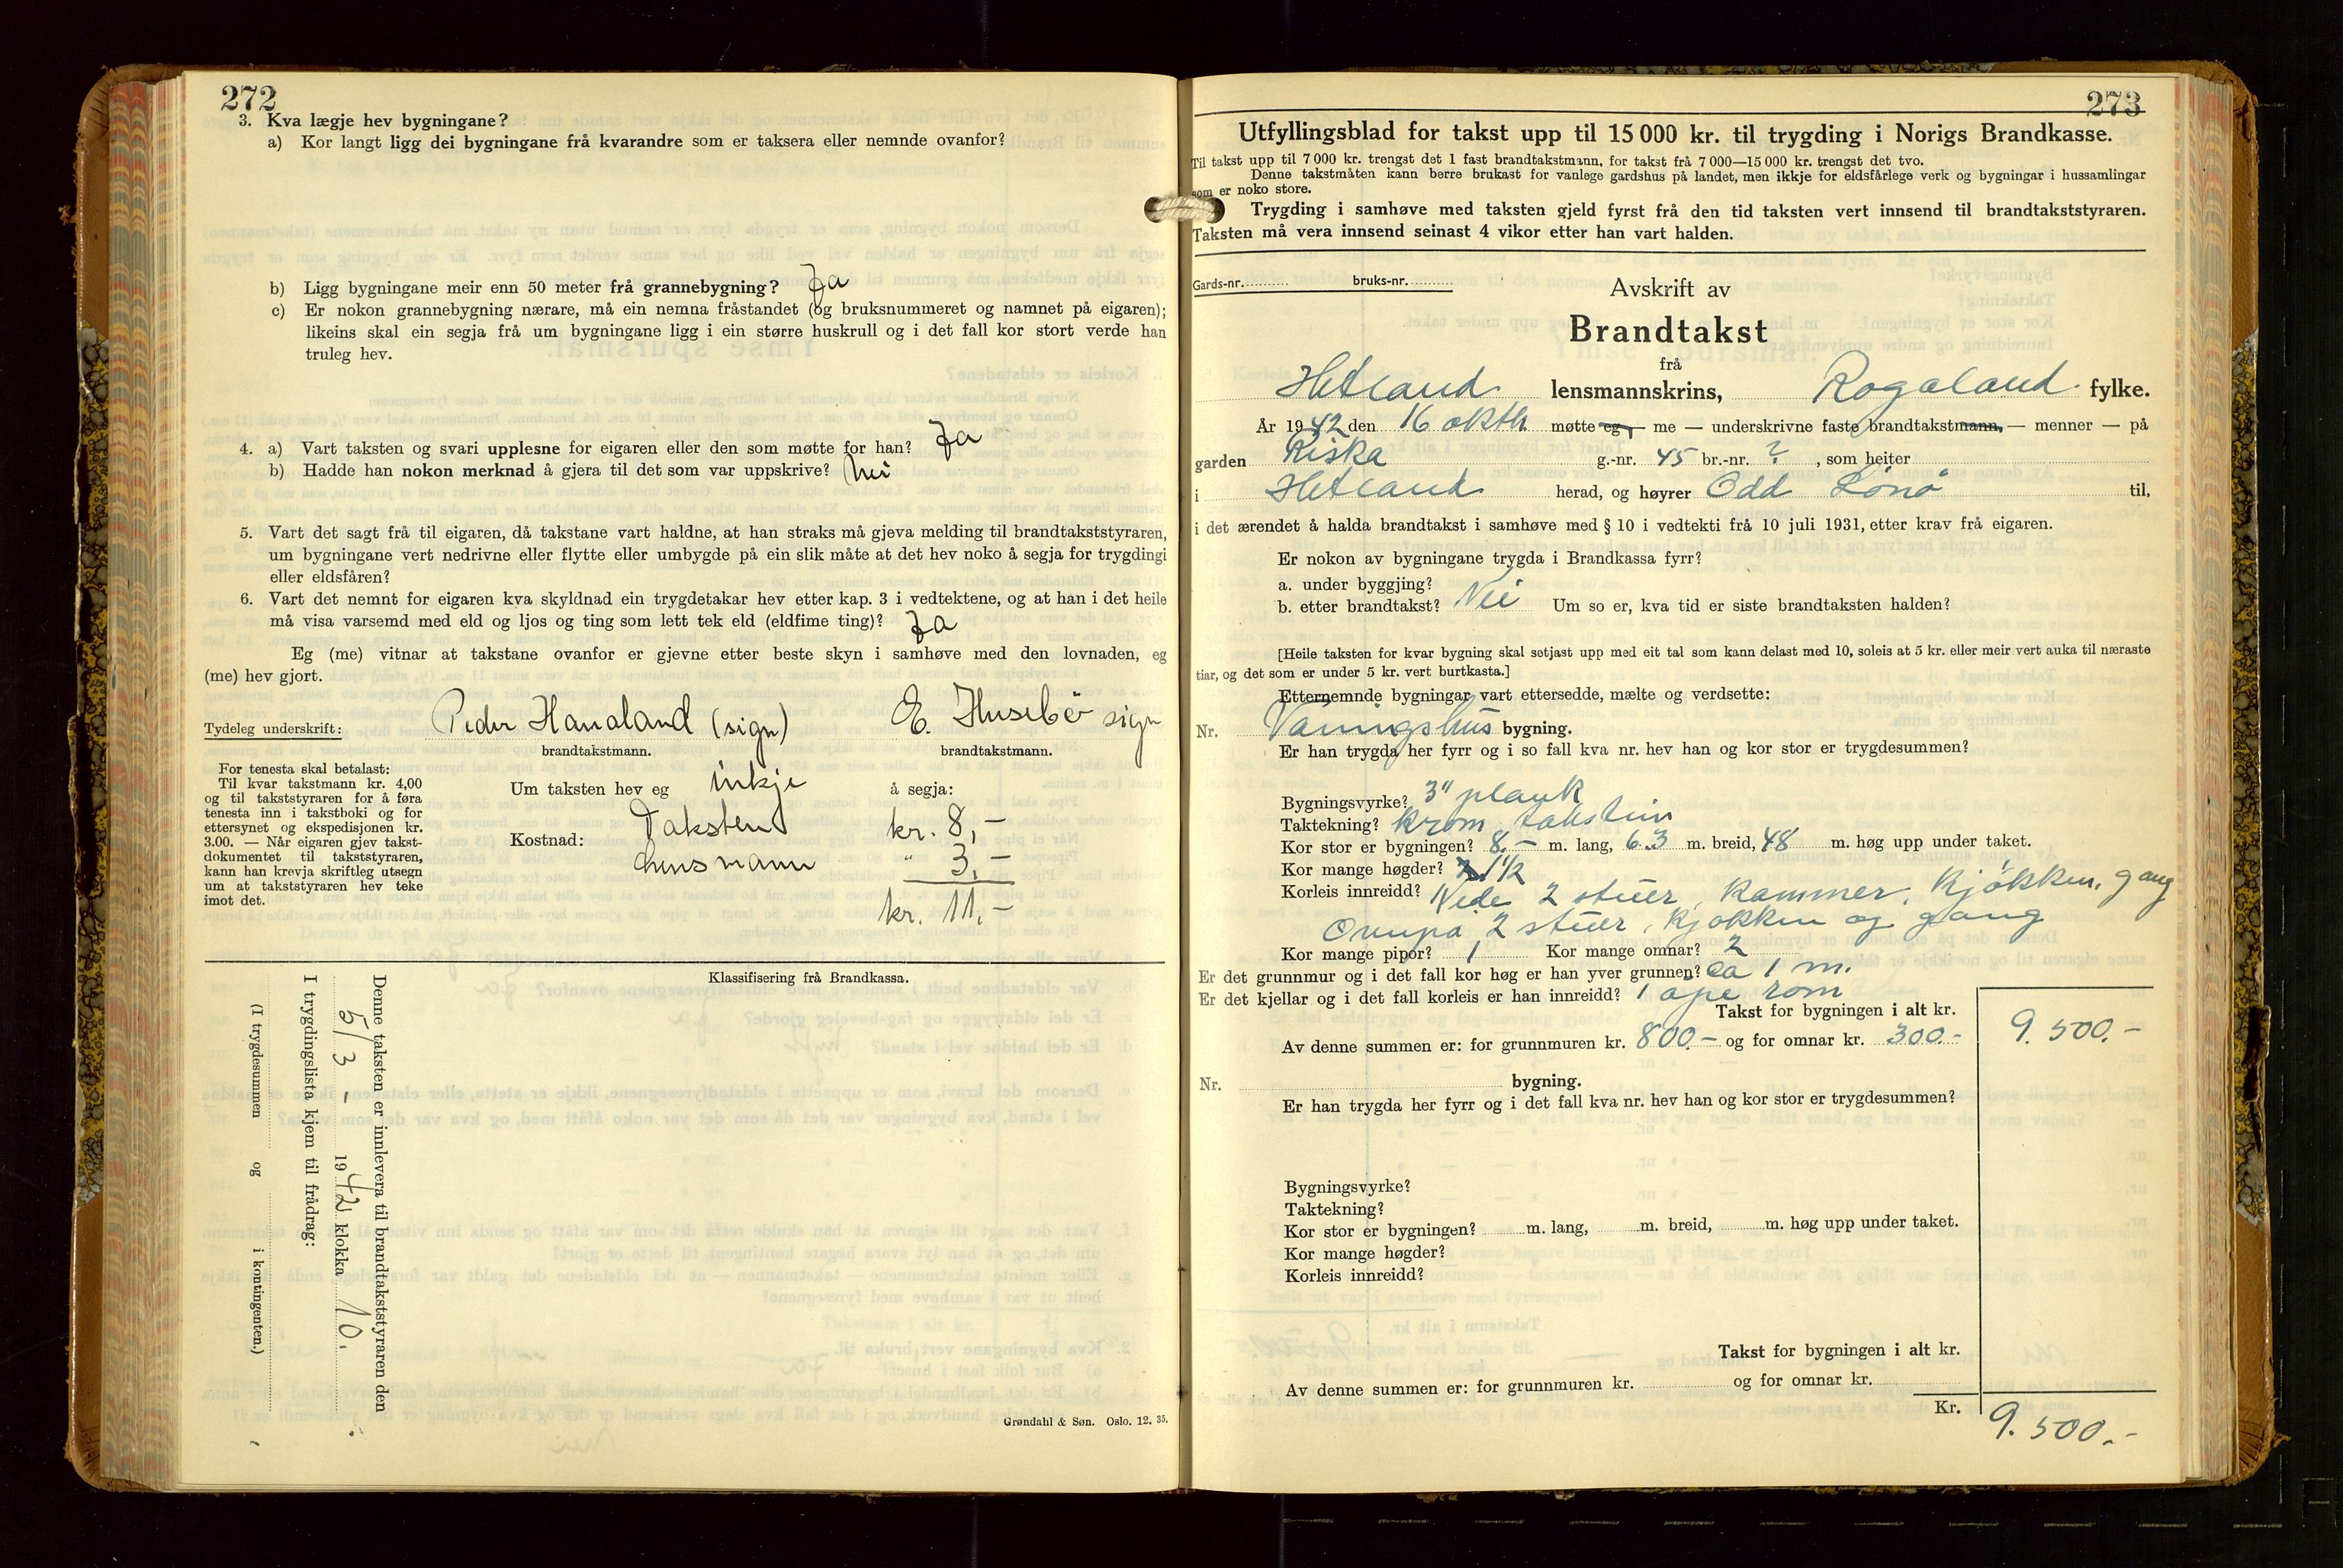 272
3. Kva lægje hev bygningane?
a) Kor langt ligg dei bygningane frå kvarandre som er taksera eller nemnde ovanfor?
b) Ligg bygningane meir enn 50 meter frå grannebygning? Ja
c) Er nokon grannebygning nærare, må ein nemna fråstandet (og bruksnummeret og namnet på eigaren);
likeins skal ein segja frå um bygningane ligg i ein større huskrull og i det fall kor stort verde han
truleg hev.
4. a) Vart taksten og svari upplesne for eigaren eller den som møtte for han? Ja
b) Hadde han nokon merknad å gjera til det som var uppskrive? Nei
5. Vart det sagt frå til eigaren, då takstane vart haldne, at han straks må gjeva melding til brandtakststyraren,
um bygningane vert nedrivne eller flytte eller umbygde på ein slik måte at det hev noko å segja for trygdingi
eller eldsfåren?
6. Vart det nemnt for eigaren kva skyldnad ein trygdetakar hev etter kap. 3 i vedtektene, og at han i det heile
må visa varsemd med eld og ljos og ting som lett tek eld (eldfime ting)? Ja
Eg (me) vitnar at takstane ovanfor er gjevne etter beste skyn i samhøve med den lovnaden, eg
(me) hev gjort.
Tydeleg underskrift: Peder Hanaland (sign) E. Husebø sign
brandtakstmann. brandtakstmann.
For tenesta skal betalast:
Til kvar takstmann kr. 4,00
og til takststyraren for å føra
tenesta inn i takstboki og for
ettersynet og ekspedisjonen kr.
3.00. — Når eigaren gjev takst-
dokumentet til takststyraren,
kann han krevja skriftleg utsegn
um at takststyraren hev teke
imot det.
Um taksten hev eg inkje å segja:
Kostnad: Taksten kr. 8,-
Lensmann " 3,-
kr. 11,-
Klassifisering frå Brandkassa.
Denne taksten er innlevera til brandtakststyraren den
5/3 - 1942 klokka 10.
I trygdingslista kjem til frådrag:
(I trygdesummen og i kontingenten.)
Grøndahl & Søn. Oslo. 12. 35.
273
Utfyllingsblad for takst upp til 15 000 kr. til trygding i Norigs Brandkasse.
Til takst upp til 7 000 kr. trengst det 1 fast brandtakstmann, for takst frå 7 000—15 000 kr. trengst det tvo.
Denne takstmåten kann berre brukast for vanlege gardshus på landet, men ikkje for eldsfårlege verk og bygningar i hussamlingar
som er noko store.
Trygding i samhøve med taksten gjeld fyrst frå den tid taksten vert innsend til brandtakststyraren.
Taksten må vera innsend seinast 4 vikor etter han vart halden.
Gards-nr. bruks-nr.
Avskrift av
Brandtakst
frå
Hetland lensmannskrins, Rogaland fylke.
År 1942 den 16 oktbr møtte eg, — me — underskrivne faste brandtakstmann, — menner — på
garden Riska g.-nr. 45 br.-nr. ? , som heiter
i Hetland herad, og høyrer Odd Lønø til,
i det ærendet å halda brandtakst i samhøve med § 10 i vedtekti frå 10 juli 1931, etter krav frå eigaren.
Er nokon av bygningane trygda i Brandkassa fyrr?
a. under byggjing?
b. etter brandtakst? Nei Um so er, kva tid er siste brandtaksten halden?
[Heile taksten for kvar bygning skal setjast upp med eit tal som kann delast med 10, soleis at 5 kr. eller meir vert auka til næraste
tiar, og det som er under 5 kr. vert burtkasta.]
Etternemnde bygningar vart ettersedde, mælte og verdsette:
Nr. Våningshus bygning.
Er han trygda her fyrr og i so fall kva nr. hev han og kor stor er trygdesummen?
Bygningsvyrke? 3" plank
Taktekning? Krom takstein
Kor stor er bygningen? 8.- m. lang, 6.3 m. breid, 48 m. høg upp under taket.
Kor mange høgder? 1 1/2
Korleis innreidd? Nede 2 stuer, Kammer, Kjøkken, gang
Ovenpå 2 stuer, kjøkken og gang
Kor mange pipor? 1 Kor mange omnar? 2
Er det grunnmur og i det fall kor høg er han yver grunnen? Ca 1 m.
Er det kjellar og i det fall korleis er han innreidd? 1 ope rom
Takst for bygningen i alt kr. 9.500.-
Av denne summen er: for grunnmuren kr. 800.- og for omnar kr. 300.-
Nr. bygning.
Er han trygda her fyrr og i det fall kva nr. hev han og kor stor er trygdesummen?
Bygningsvyrke?
Taktekning?
Kor stor er bygningen? m. lang, m. breid, m. høg upp under taket.
Kor mange høgder?
Korleis innreidd?
Takst for bygningen i alt kr.
Av denne summen er: for grunnmuren kr. og for omnar kr.
Kr. 9.500.-